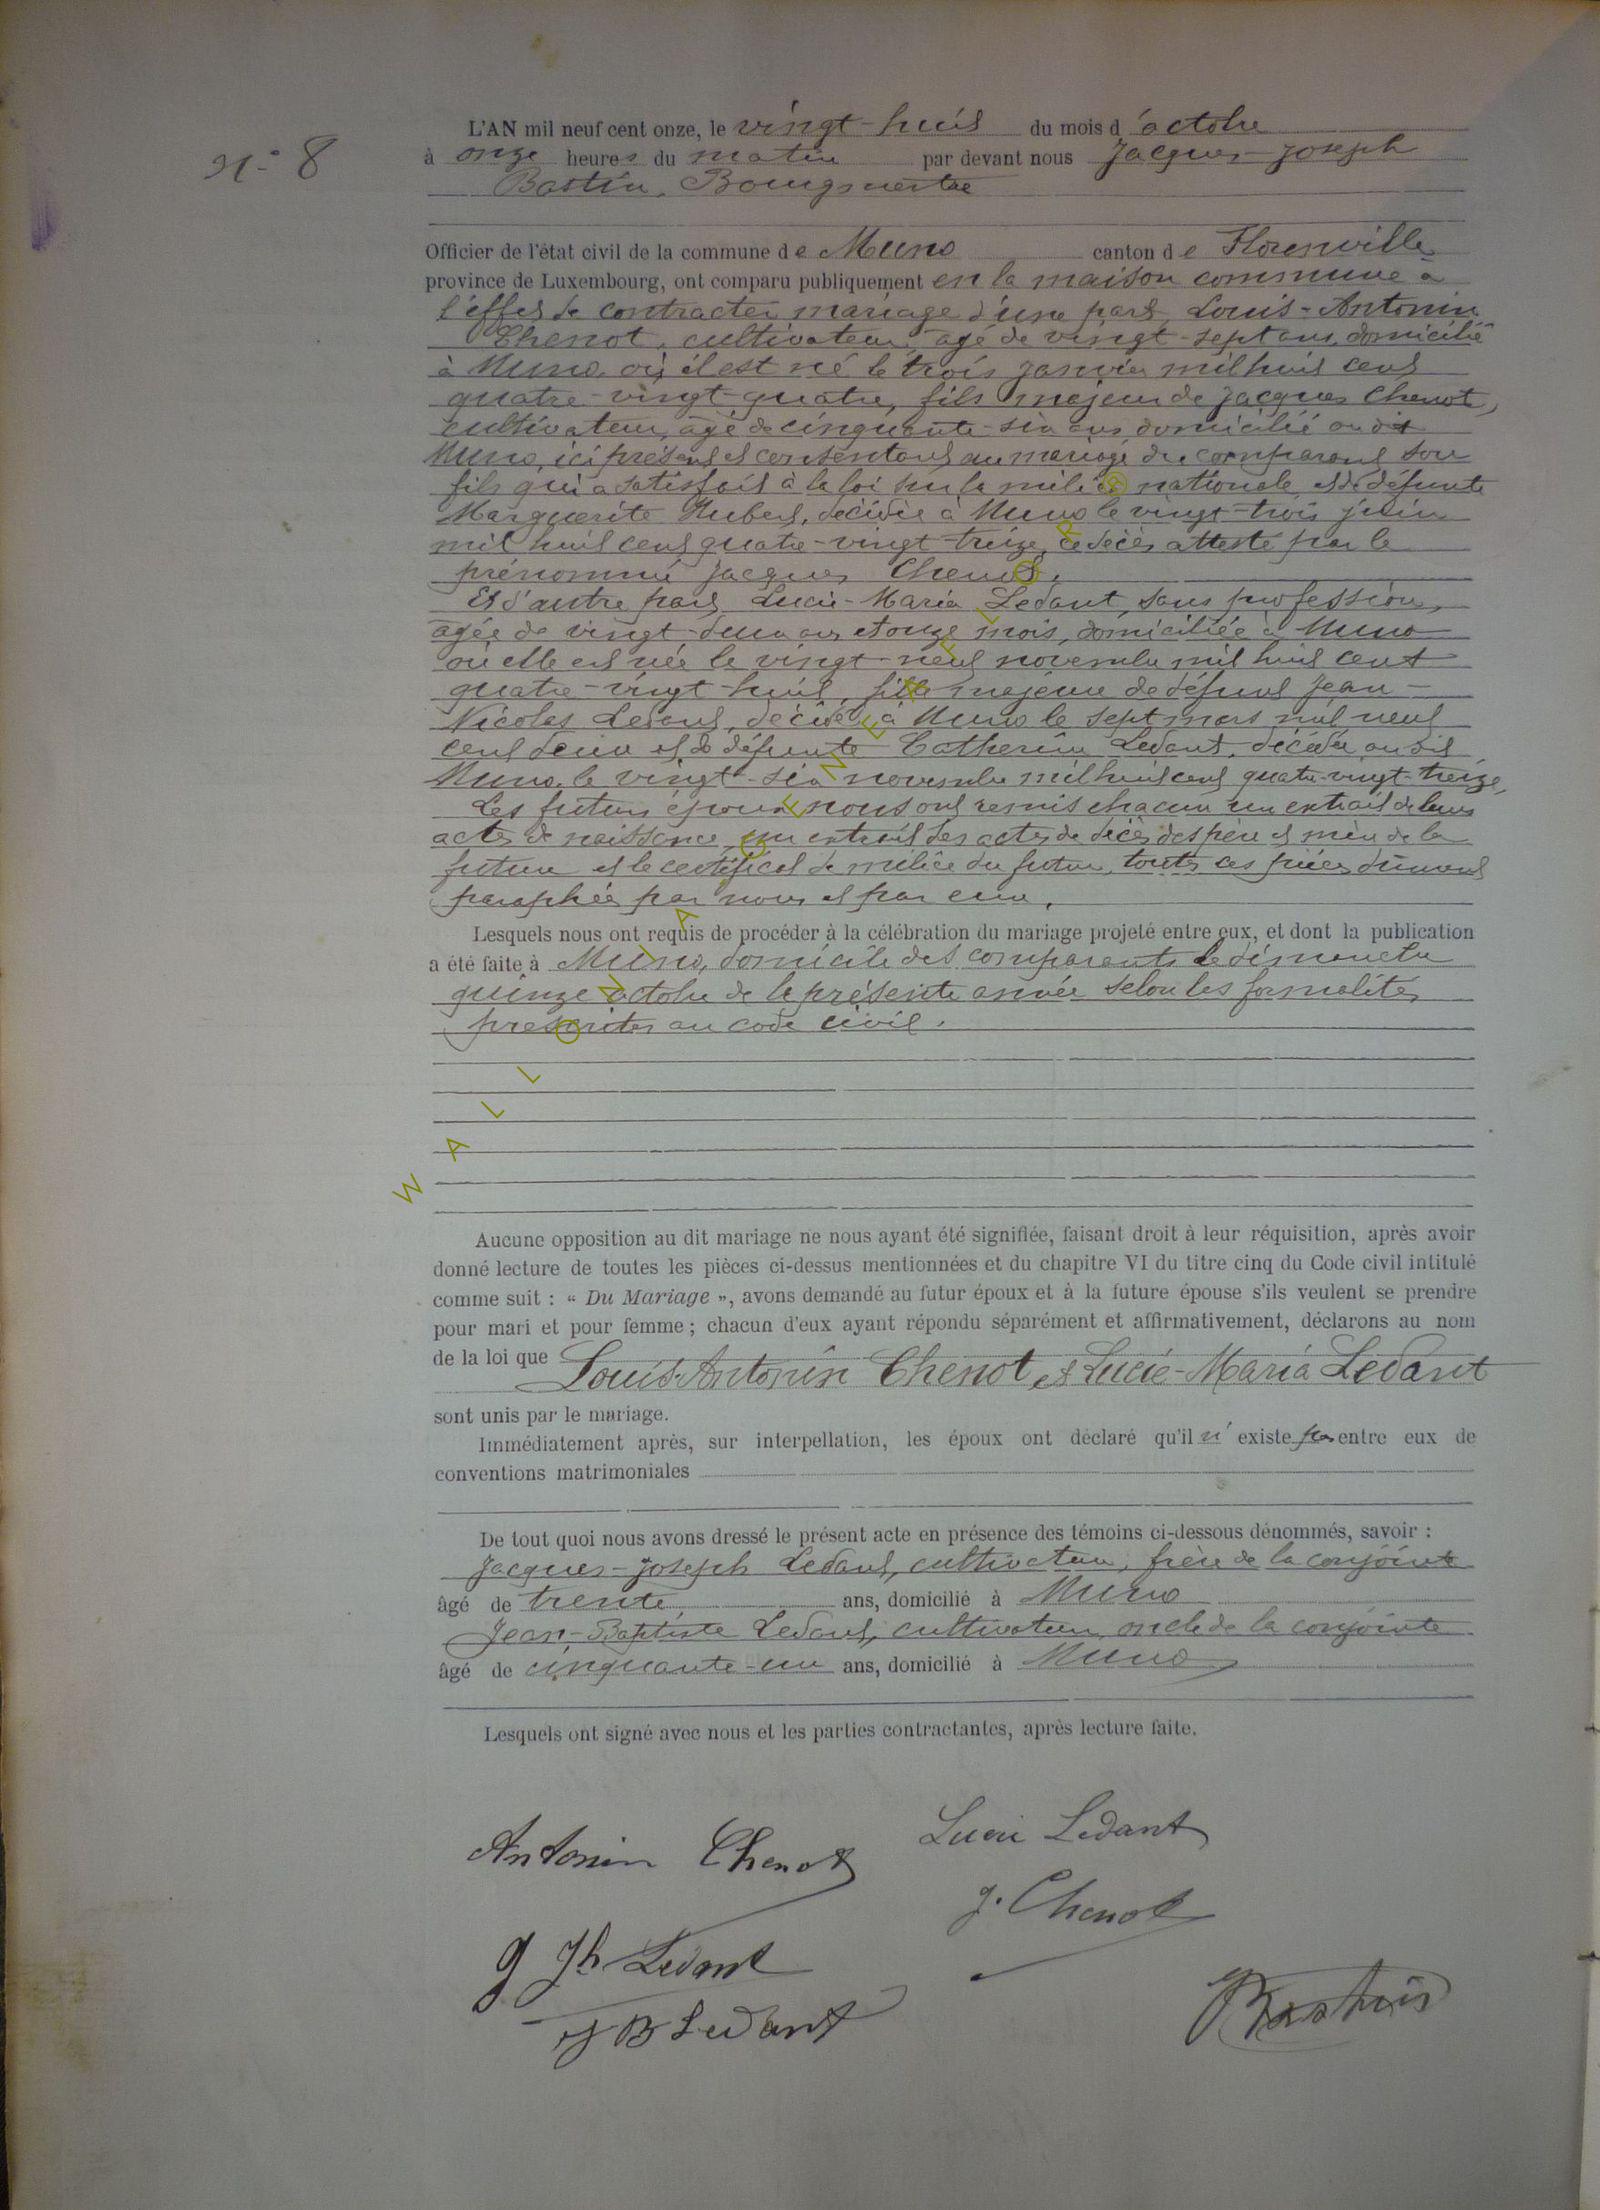 N° 8
L'AN mil neuf cent onze, le vingt-huit du mois d'octobre
à onze heures du matin par devant nous Jacques-Joseph
Bastin, Bourgmestre
Officier de l'état civil de la commune de Muno canton de Florenville
province de Luxembourg, ont comparu publiquement en la maison commune à
l'effet de contracter mariage d'une part, Louis-Antonin
Chenot, cultivateur, agé de vingt-sept ans, domicilié
à Muno, où il est né le trois janvier mil huit cent
quatre-vingt-quatre, fils majeur de Jacques Chenot,
cultivateur, agé de cinquante-six ans domicilié au dit
Muno, ici présent et consentant au mariage du comparant son
fils qui a satisfait à la loi sur la milice nationale, et de défunte
Marguerite Hubert, décédée à Muno le vingt-trois juin
mil huit cent quatre-vingt-treize, ce décès attesté par le
prénommé Jacques Chenot.
Et d'autre part, Lucie-Maria Ledant, sans profession,
agée de vingt-deux ans et onze mois, domiciliée à Muno
où elle est née le vingt-neuf novembre mil huit cent
quatre-vingt-huit, fille majeure de défunt Jean-
Nicolas Ledant, décédé à Muno le sept mars mil neuf
cent deux et de défunte Catherine Ledant, décédée au dit
Muno, le vingt-six novembre mil huit cent quatre-vingt-treize,
Les futurs époux nous ont remis chacun un extrait de leurs
actes de naissance, un extrait des actes de décès des père et mère de la
future et le certificat de milice du futur, toutes ces pièces dûment
paraphées par nous et par eux.
Lesquels nous ont requis de procéder à la célébration du mariage projeté entre eux, et dont la publication
a été faite à Muno, domicile des comparants le dimanche
quinze octobre de la présente année selon les formalités
prescrites au code civil.
Aucune opposition au dit mariage ne nous ayant été signifiée, faisant droit à leur réquisition, après avoir
donné lecture de toutes les pièces ci-dessus mentionnées et du chapitre VI du titre cinq du Code civil intitulé
comme suit : « Du Mariage », avons demandé au futur époux et à la future épouse s'ils veulent se prendre
pour mari et pour femme ; chacun d'eux ayant répondu séparément et affirmativement, déclarons au nom
de la loi que Louis-Antonin Chenot et Lucie-Maria Ledant
sont unis par le mariage.
Immédiatement après, sur interpellation, les époux ont déclaré qu'il n'existe pas entre eux de
conventions matrimoniales
De tout quoi nous avons dressé le présent acte en présence des témoins ci-dessous dénommés, savoir :
Jacques-Joseph Ledant, cultivateur, frère de la conjointe
âgé de trente ans, domicilié à Muno
Jean-Baptiste Ledant, cultivateur, oncle de la conjointe
âgé de cinquante-un ans, domicilié à Muno
Lesquels ont signé avec nous et les parties contractantes, après lecture faite.
Antonin Chenot
Lucie Ledant
J. Chenot
J Jh Ledant
J B Ledant
Bastin
WALLONIA GENEAFLOR ®